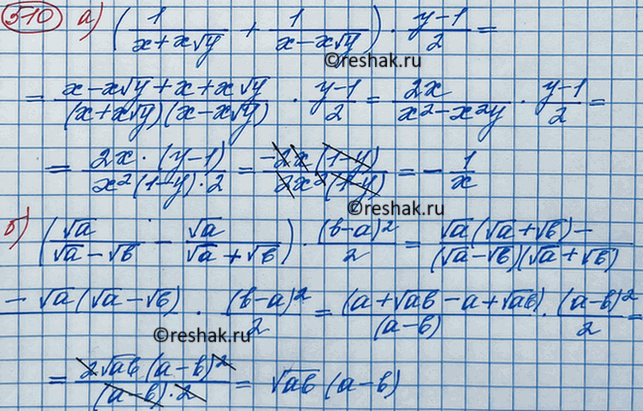 510 а) (1/(x+x√y) + 1/(x-x√y)) · (y-1)/2 =
©reshak.ru
= (x-x√y+x+x√y)/((x+x√y)(x-x√y)) · (y-1)/2 = 2x/(x²-x²y) · (y-1)/2 =
= (2x·(y-1))/(x²(1-y)·2) = (-2x(1-y))/(2x²(1-y)) = -1/x
©reshak.ru
б) (√a/(√a-√b) - √a/(√a+√b)) · (b-a)²/2 = (√a(√a+√b)-)/((√a-√b)(√a+√b))
(-√a(√a-√b)) · (b-a)²/2 = (a+√ab-a+√ab)/(a-b) · (a-b)²/2 =
©reshak.ru
= (2√ab(a-b)²)/((a-b)·2) = √ab(a-b)